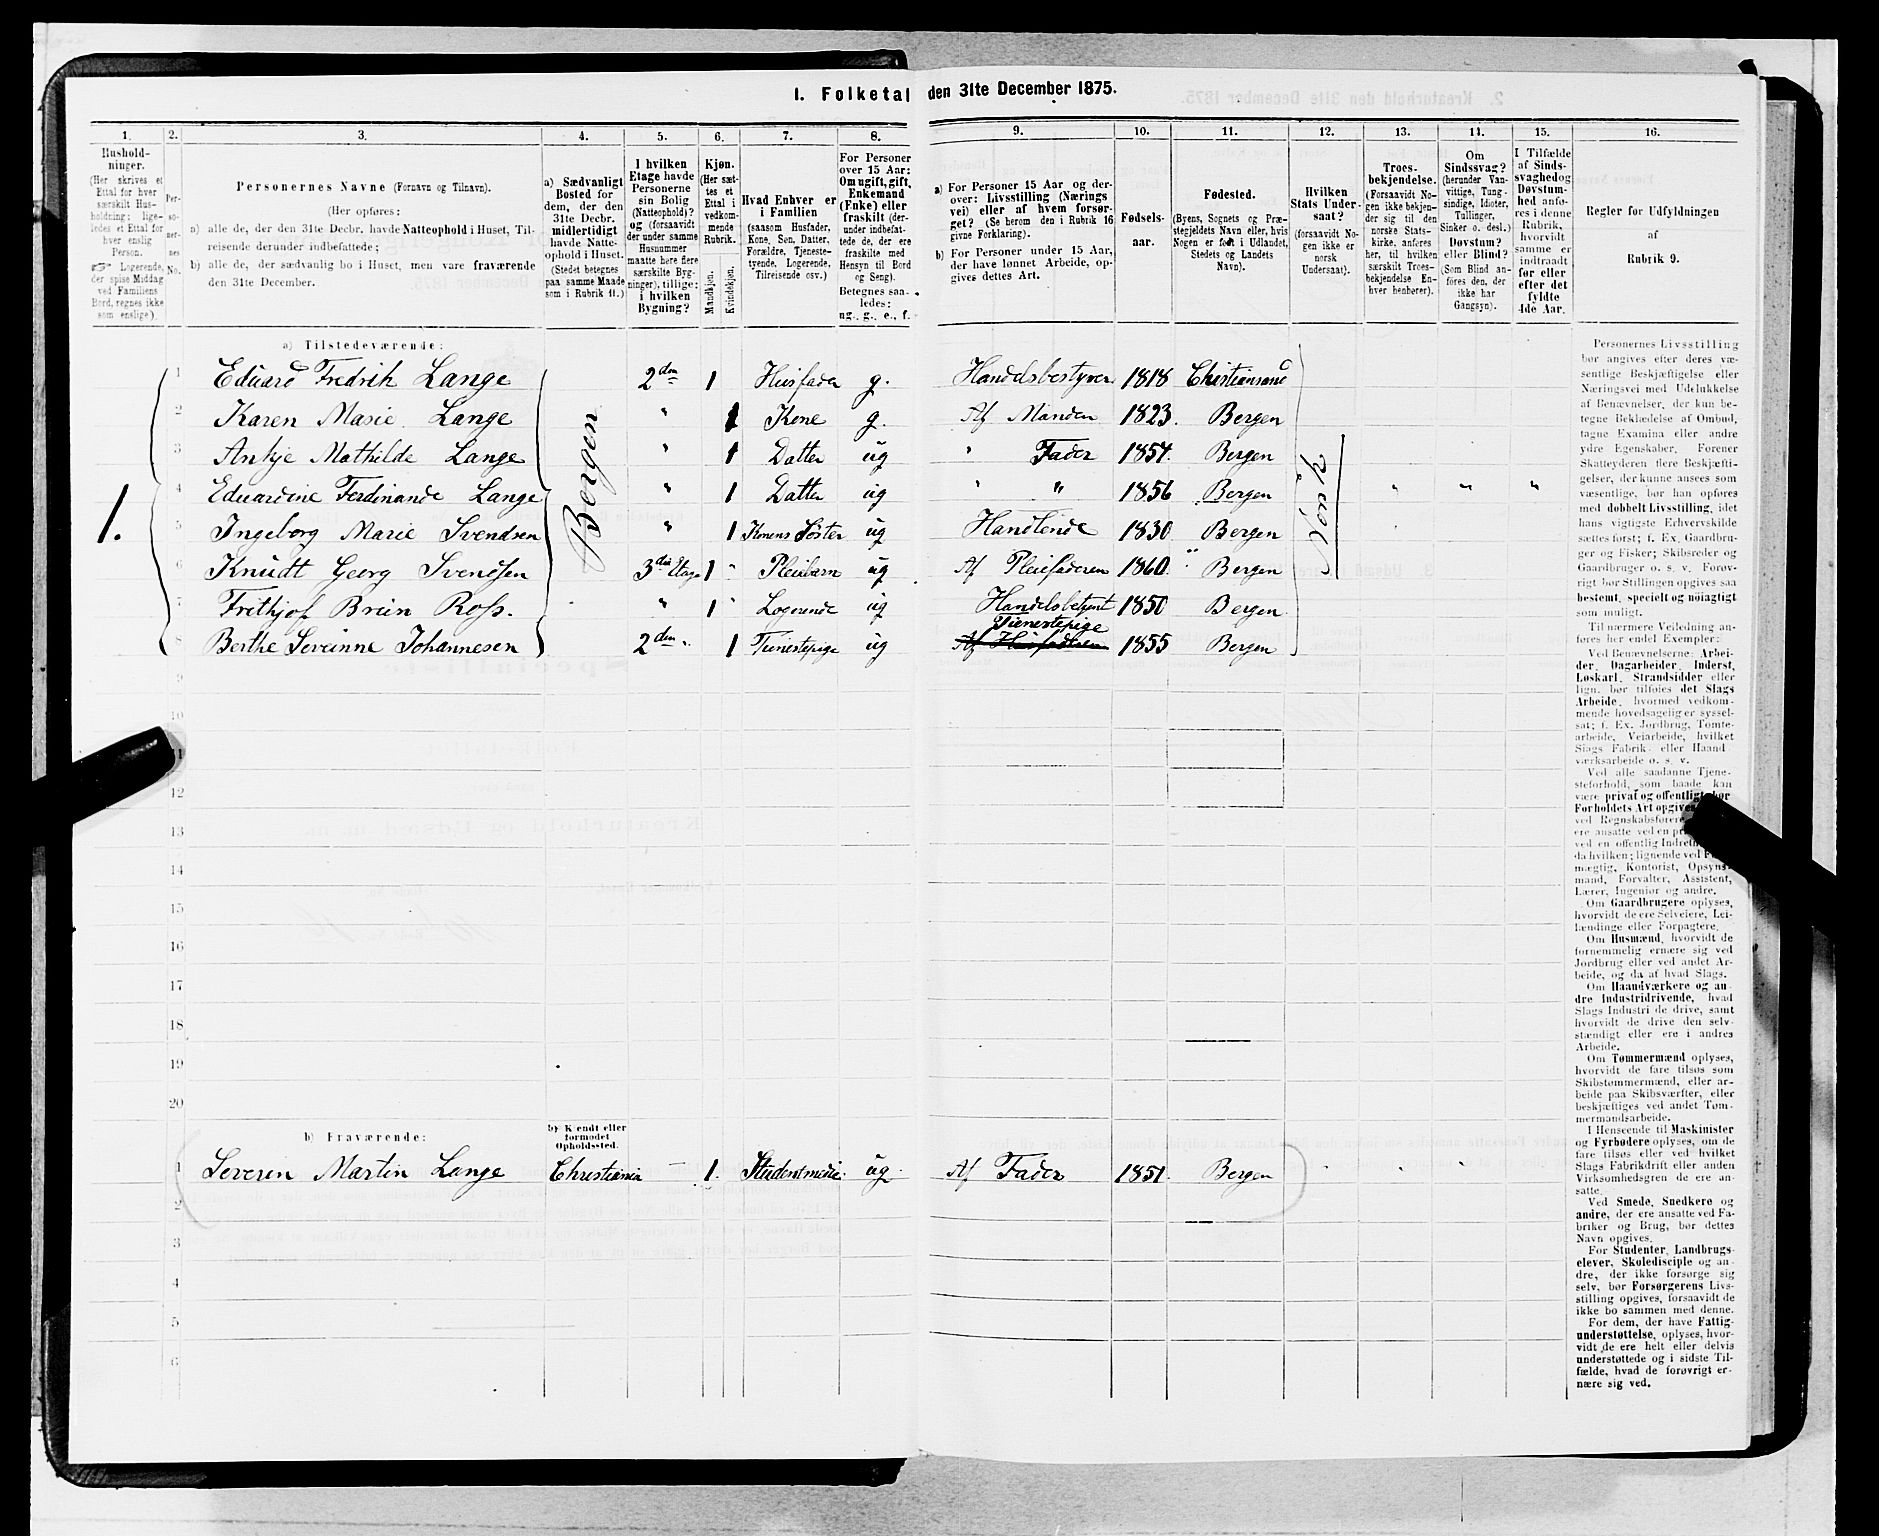 1. Folketal den 31te December 1875.
1. 2. 3. 4. 5. 6. 7. 8. 9. 10. 11. 12. 13. 14. 15. 16.
Hushold-
ninger.
(Her skrives et
Ettal for hver
særskilt Hus-
holdning; lige-
ledes et Ettal for
hver enslig
Person.
☞ Logerende,
der spise Middag
ved Familiens
Bord, regnes ikke
som enslige).
Per-
so-
ner-
nes
No.
Personernes Navne (Fornavn og Tilnavn).
(Her opføres:
a) alle de, der den 31te Decbr. havde Natteophold i Huset, Til-
reisende derunder indbefattede;
b) alle de, der sædvanlig bo i Huset, men vare fraværende
den 31te December.
a) Sædvanligt
Bosted for
dem, der den
31te Decbr.
midlertidigt
havde Natte-
ophold i Huset.
(Stedet betegnes
paa samme Maade
som i Rubrik 11.)
I hvilken
Etage havde
Personerne
sin Bolig
(Natteophold)?
og (forsaavidt
der under samme
Husnummer
maatte høre flere
særskilte Byg-
ninger), tillige:
i hvilken
Bygning?
Kjøn.
(Her sæt-
tes et
Ettal i
vedkom-
mende
Rubrik.
Mandkjøn.
Kvindekjøn.
Hvad Enhver er
i Familien
(saasom Husfader,
Kone, Søn, Datter,
Forældre, Tjeneste-
tyende, Logerende,
Tilreisende osv.)
For Personer
over 15 Aar:
Om ugift, gift,
Enkemand
(Enke) eller
fraskilt (der-
under indbefat-
tede de, der ere
fraskilte med
Hensyn til Bord
og Seng).
Betegnes saa-
ledes:
ug., g., e., f.
a) For Personer 15 Aar og der-
over: Livsstilling (Nærings
vei) eller af hvem forsør-
get? (Se herom den i Rubrik 16
givne Forklaring).
b) For Personer under 15 Aar,
der have lønnet Arbeide, op-
gives dettes Art.
Fødsels-
aar.
Fødested.
(Byens, Sognets og Præ-
stegjeldets Navn eller, hvis
Nogen er født i Udlandet,
Stedets og Landets
Navn).
Hvilken
Stats Under-
saat?
(forsaavidt No-
gen ikke er
norsk
Undersaat).
Troes-
bekjendelse.
(Forsaavidt No-
gen ikke bekjen-
der sig til den
norske Stats-
kirke, anføres
her, til hvilken
særskilt Troes-
bekjendelse En-
hver henhører).
Om
Sindssvag?
(herunder Van-
vittige, Tung-
sindige, Idioter,
Tullinger,
Sinker o. desl.)
Døvstum?
eller Blind?
(Som Blind an-
føres den, der
ikke har
Gangsyn).
I Tilfælde
af Sinds-
svaghed og
Døvstum-
hed anfø-
res i denne
Rubrik,
hvorvidt
samme er
indtraadt
før eller
efter det
fyldte
4de Aar.
Regler for Udfyldningen
af
Rubrik 9.
a) Tilstedeværende:
1 Eduard Fredrik Lange 2den 1 Husfader g. Handelsbestyrer 1818 Christiansand
2 Karen Marie Lange " 1 Kone g. Af Manden 1823. Bergen
3 Antje Mathilde Lange " 1 Datter ug " Fader 1854. Bergen
4 Eduardine Ferdinande Lange " 1 Datter ug " " 1856 Bergen " " "
1.
Bergen
Norsk
5 Ingeborg Marie Svendsen " 1 Konens Søster ug Handlende 1830 Bergen
6 Knudt Georg Svendsen 3die Etage 1 Pleiebarn ug Af Pleiefaderen 1860 Bergen
7 Frithjof Brun Ross. " 1 Logerende ug Handelsbetjent 1850 Bergen
8 Berthe Sevrinne Johannesen 2den 1 Tienestepige ug Af Husfaderen Tienestepige 1855 Bergen
9
10
12
13
14
15
16
17
18
19
20
b) Fraværende:
b) Kjendt eller
formodet
Opholdssted.
1 Severin Martin Lange Christiania — 1. Student medic. ug. Af Fader 1851. Bergen
2
3
4
5
6
Personernes Livsstilling
bør angives efter deres væ-
sentlige Beskjæftigelse eller
Næringsvei med Udelukkelse
af Benævnelser, der kun be-
tegne Beklædelse af Ombud,
tagne Examina eller andre
ydre Egenskaber. Forener
Skatteyderen flere Beskjæfti-
gelser, der kunne ansees som
væsentlige, bør han opføres
med dobbelt Livsstilling, idet
hans vigtigste Erhvervskilde
sættes først; f. Ex. Gaardbru-
ger og Fisker; Skibsreder og
Gaardbruger o. s. v. Forøv-
rigt bør Stillingen opgives saa
bestemt, specielt og nøiagtigt
som muligt.
Til nærmere Veiledning an-
føres her endel Exempler:
Ved Benævnelserne: Arbei-
der, Dagarbeider, Inderst,
Løskarl, Strandsidder eller
lign. bør tilføies det Slags
Arbeide, hvormed vedkom-
mende hovedsagelig er syssel-
sat; f. Ex. Jordbrug, Tomte-
arbeide, Veiarbeide, hvilket
Slags Fabrik- eller Haand-
værksarbeide o. s. v.
Ved alle saadanne Tjene-
steforhold, som baade kan
være privat og offentligt, bør
Forholdets Art opgives,
ved Regnskabsførere,
ere ansatte ved en pri
ved en offentlig Indretn
da hvilken; lignende ved F
mægtig, Kontorist, Opsyns-
mand, Forvalter, Assistent,
Lærer, Ingeniør og andre.
Om Gaardbrugere oplyses,
hvorvidt de ere Selveiere, Lei-
lændinge eller Forpagtere.
Om Husmænd, hvorvidt de
fornemmelig ernære sig ved
Jordbrug eller ved andet Ar-
beide, og da af hvad Slags.
Om Haandværkere og an-
dre Industridrivende, hvad
Slags Industri de drive, samt
hvorvidt de drive den selv-
stændigt eller ere i andres
Arbeide.
Om Tømmermænd oplyses,
hvorvidt de fare tilsøs som
Skibstømmermænd, eller ar-
beide paa Skibsværfter, eller
beskjæftiges ved andet Tøm-
mermandsarbeide.
I Henseende til Maskinister
og Fyrbødere oplyses, om de
fare tilsøs eller ved hvilket
Slags Fabrikdrift eller anden
Virksomhedsgren de ere an-
satte.
Ved Smede, Snedkere og
andre, der ere ansatte ved Fa-
briker og Brug, bør dettes
Navn opgives.
For Studenter, Landbrugs-
elever, Skoledisciple og an-
dre, der ikke forsørge sig
selv, bør Forsørgerens Livs-
stilling opgives, forsaavidt de
ikke bo sammen med denne.
For dem, der have Fattig-
understøttelse, oplyses, hvor-
vidt de ere helt eller delvis
understøttede og i sidste Til-
fælde, hvad de forøvrigt er-
nære sig ved.